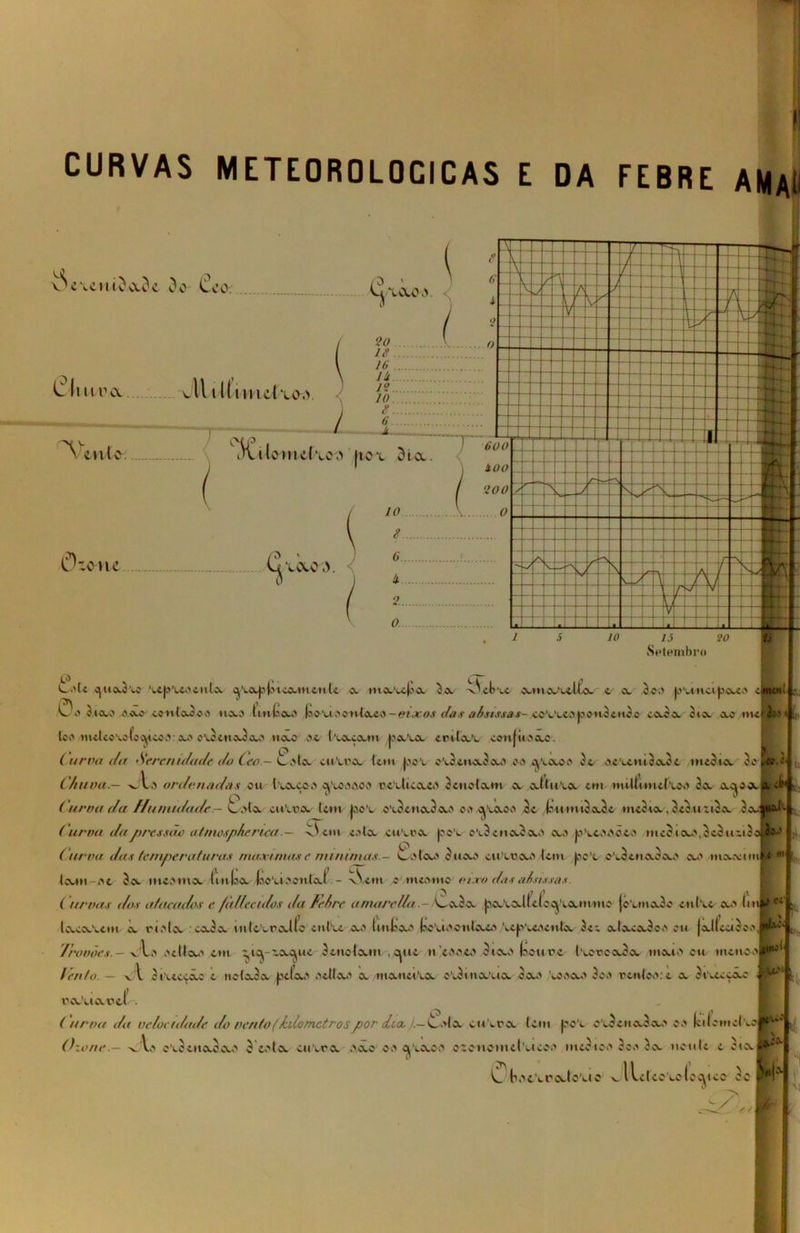 CURVAS METEOROLOGICAS E DA FEBRE AMA
Serenidade do Ceo: Gráos.
8
6
4
2
0
Chuva Millimetros.
20
18
16
14
12
10
8
6
4
Vento: Kilometros por dia.
600
400
200
0
Ozone Gráos.
10
8
6
4
2
0
1 5 10 15 20
Setembro
Este quadro representa graphicamente a marcha da Febre amarella e a dos principaes
Os dias são contados nas linhas horisontaes -eixos das absissas- correspondendo cada dia ao
tos meteorologicos: as ordenadas não se traçaram para evitar confusão.
Curva da Serenidade do Ceo – Esta curva tem por ordenadas os gráos de serenidade media do
Chuva.– As ordenadas ou traços grossos verticaes denotam a altura em millimetros da agoa
Curva da Humidade.– Esta curva tem por ordenadas os gráos de humidade media, deduzida da
Curva da pressão atmospherica.– Tem esta curva por ordenadas as pressões medias, deduzida
Curvas das temperaturas maximas e minimas.– Estas duas curvas tem por ordenadas as maxim
tam-se da mesma linha horisontal. – Tem o mesmo eixo das absissas.
Curvas dos atacados e fallecidos da Febre amarella.– Cada parallelogrammo formado entre as lin
tacarem á vista: cada intervallo entre as linhas horisontaes representa dez atacados ou fallecidos,
Trovões.– As settas em zig-zague denotam, que n'esses dias houve trovoada, mais ou menos
Vento. – A direcção é notada pelas settas á maneira ordinaria das rosas dos ventos: e a direcção
variavel.
Curva da velocidade do vento (kilometros por dia).– Esta curva tem por ordenadas os kilometros
Ozone.– As ordenadas d'esta curva são os gráos ozonometricos medios dos da noute e dia
Observatorio Meteorologico do